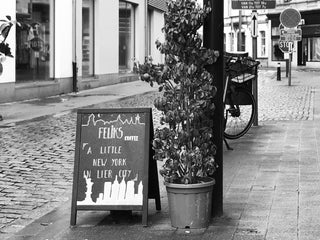 FELIKS
COFFEE
A LITTLE
NEW YORK
IN LIER CITY